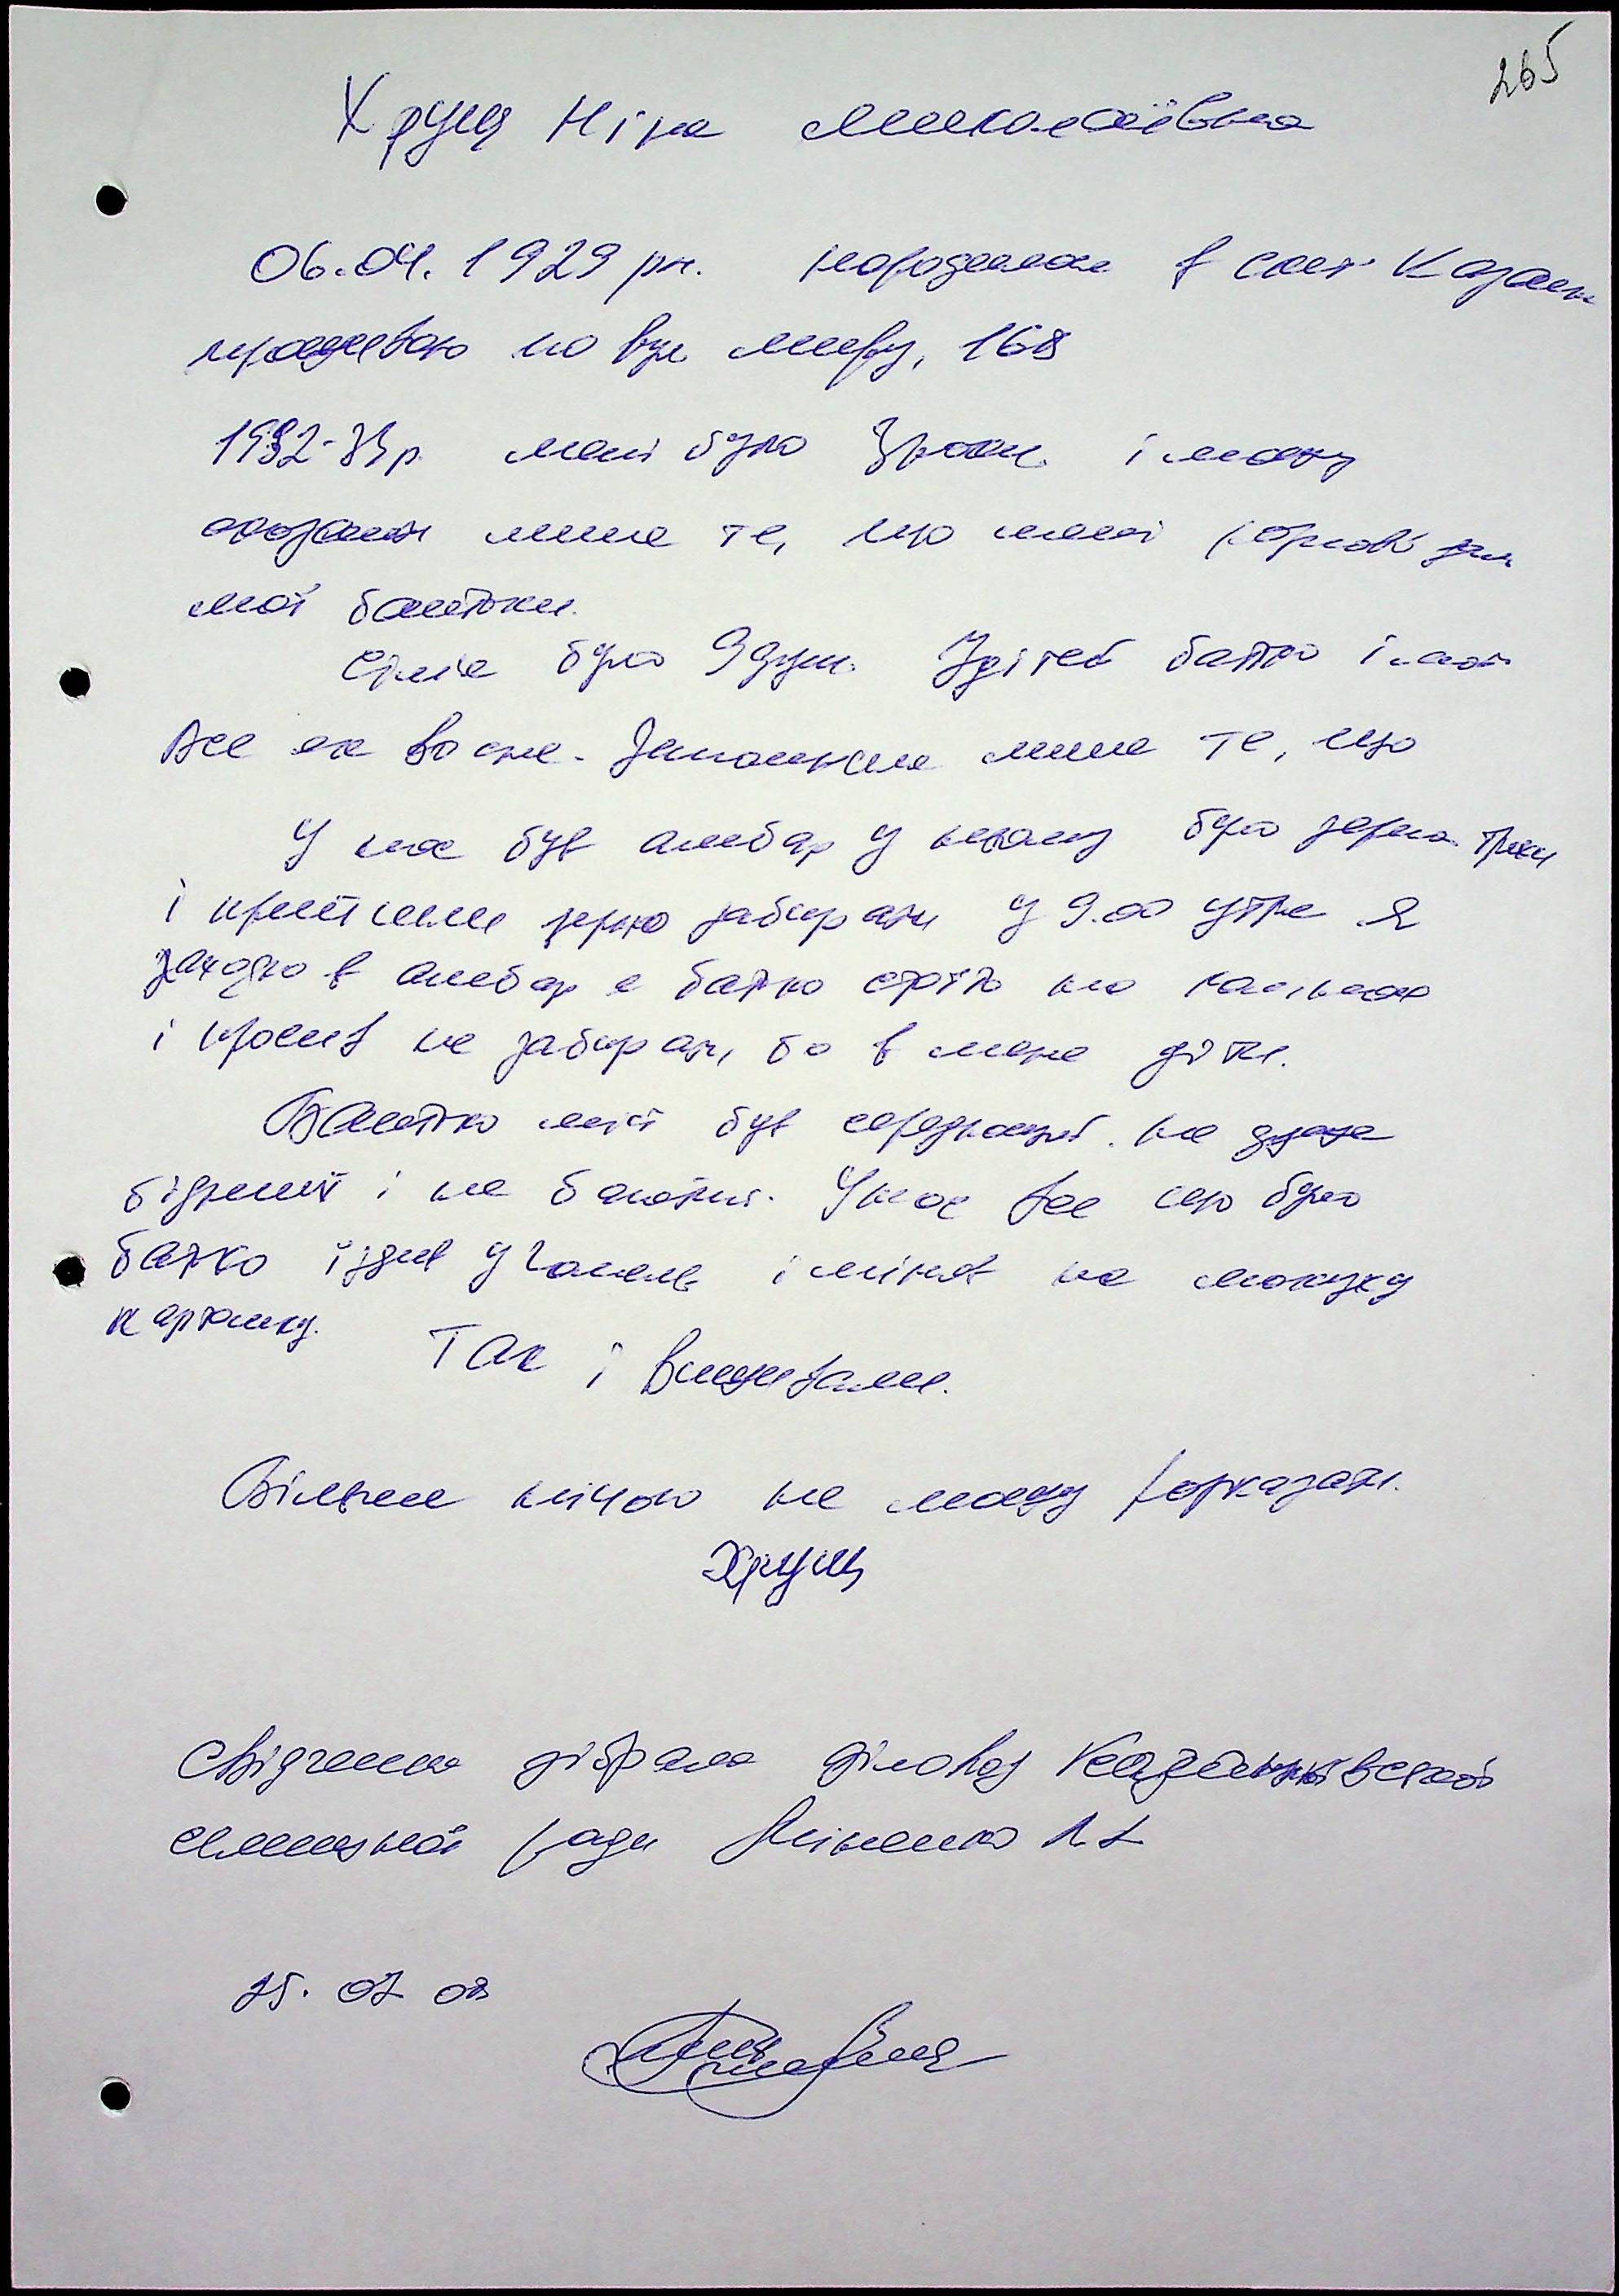 265
Хрущ Ніна Миколаївна
06.04. 1929 рн. народилась в смт Казанк
проживаю по вул миру, 168
1932-33 р мені було 3 роки і можу
сказати лише те, що мені розповідали
мої батьки.
Сім'я було 9 душ. 7 дітей батько і мати
Все як во сне. Запомнила лише те, що
У нас був амбар у ньому було зерна трохи
і прийшли зерно забирати у 9.00 утра я
заходю в амбар а батько стоїть на колінах
і просив не забирати, бо в мене діти.
Батько мій був середняцкий. не дуже
бідний і не багатий. У нас все що було
батько їздив у Гомель і міняв на макуху
картошку.
Так і виживали.
Більше нічого не можу розказати.
Хрущ
Свідчення зібрала діловод Казанківської
селищної ради Міненко
25. 07 08